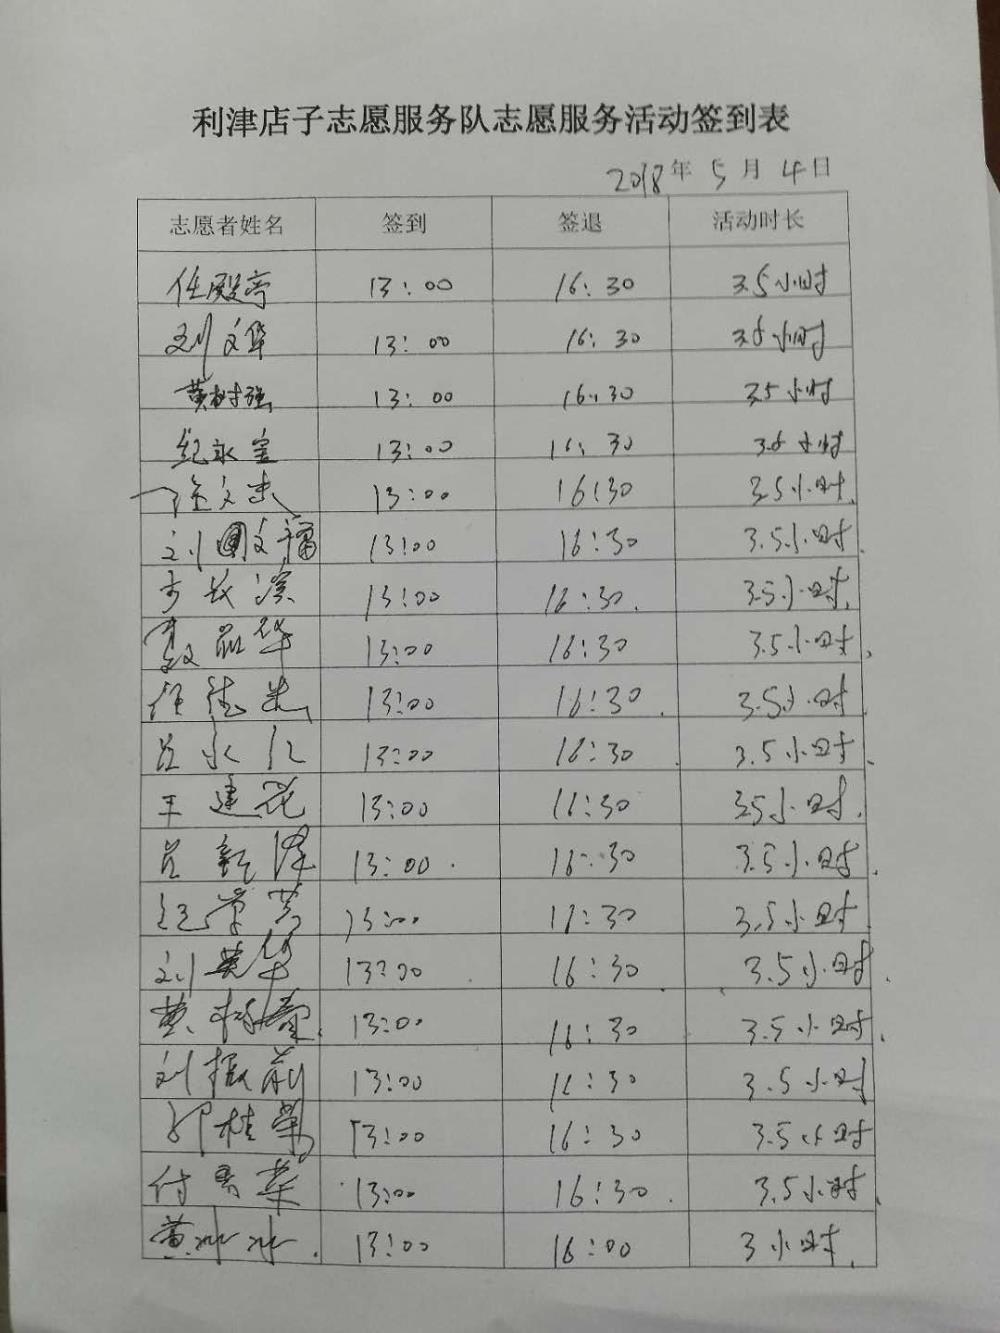 利津店子志愿服务队志愿服务活动签到表
2018年5月4日
志愿者姓名 签到 签退 活动时长
任殿亭 13:00 16:30 3.5小时
刘文华 13:00 16:30 3.5小时
黄树强 13:00 16:30 3.5小时
纪永宝 13:00 16:30 3.5小时
徐文忠 13:00 16:30 3.5小时
刘文福 13:00 16:30 3.5小时
13:00 16:30 3.5小时
13:00 16:30 3.5小时
13:00 16:30 3.5小时
吕永江 13:00 16:30 3.5小时
王建花 13:00 16:30 3.5小时
吕新泽 13:00 16:30 3.5小时
13:00 16:30 3.5小时
刘英华 13:00 16:30 3.5小时
黄 13:00 16:30 3.5小时
刘振前 13:00 16:30 3.5小时
桂菊 13:00 16:30 3.5小时
付秀荣 13:00 16:30 3.5小时
黄冰冰 13:00 16:00 3小时